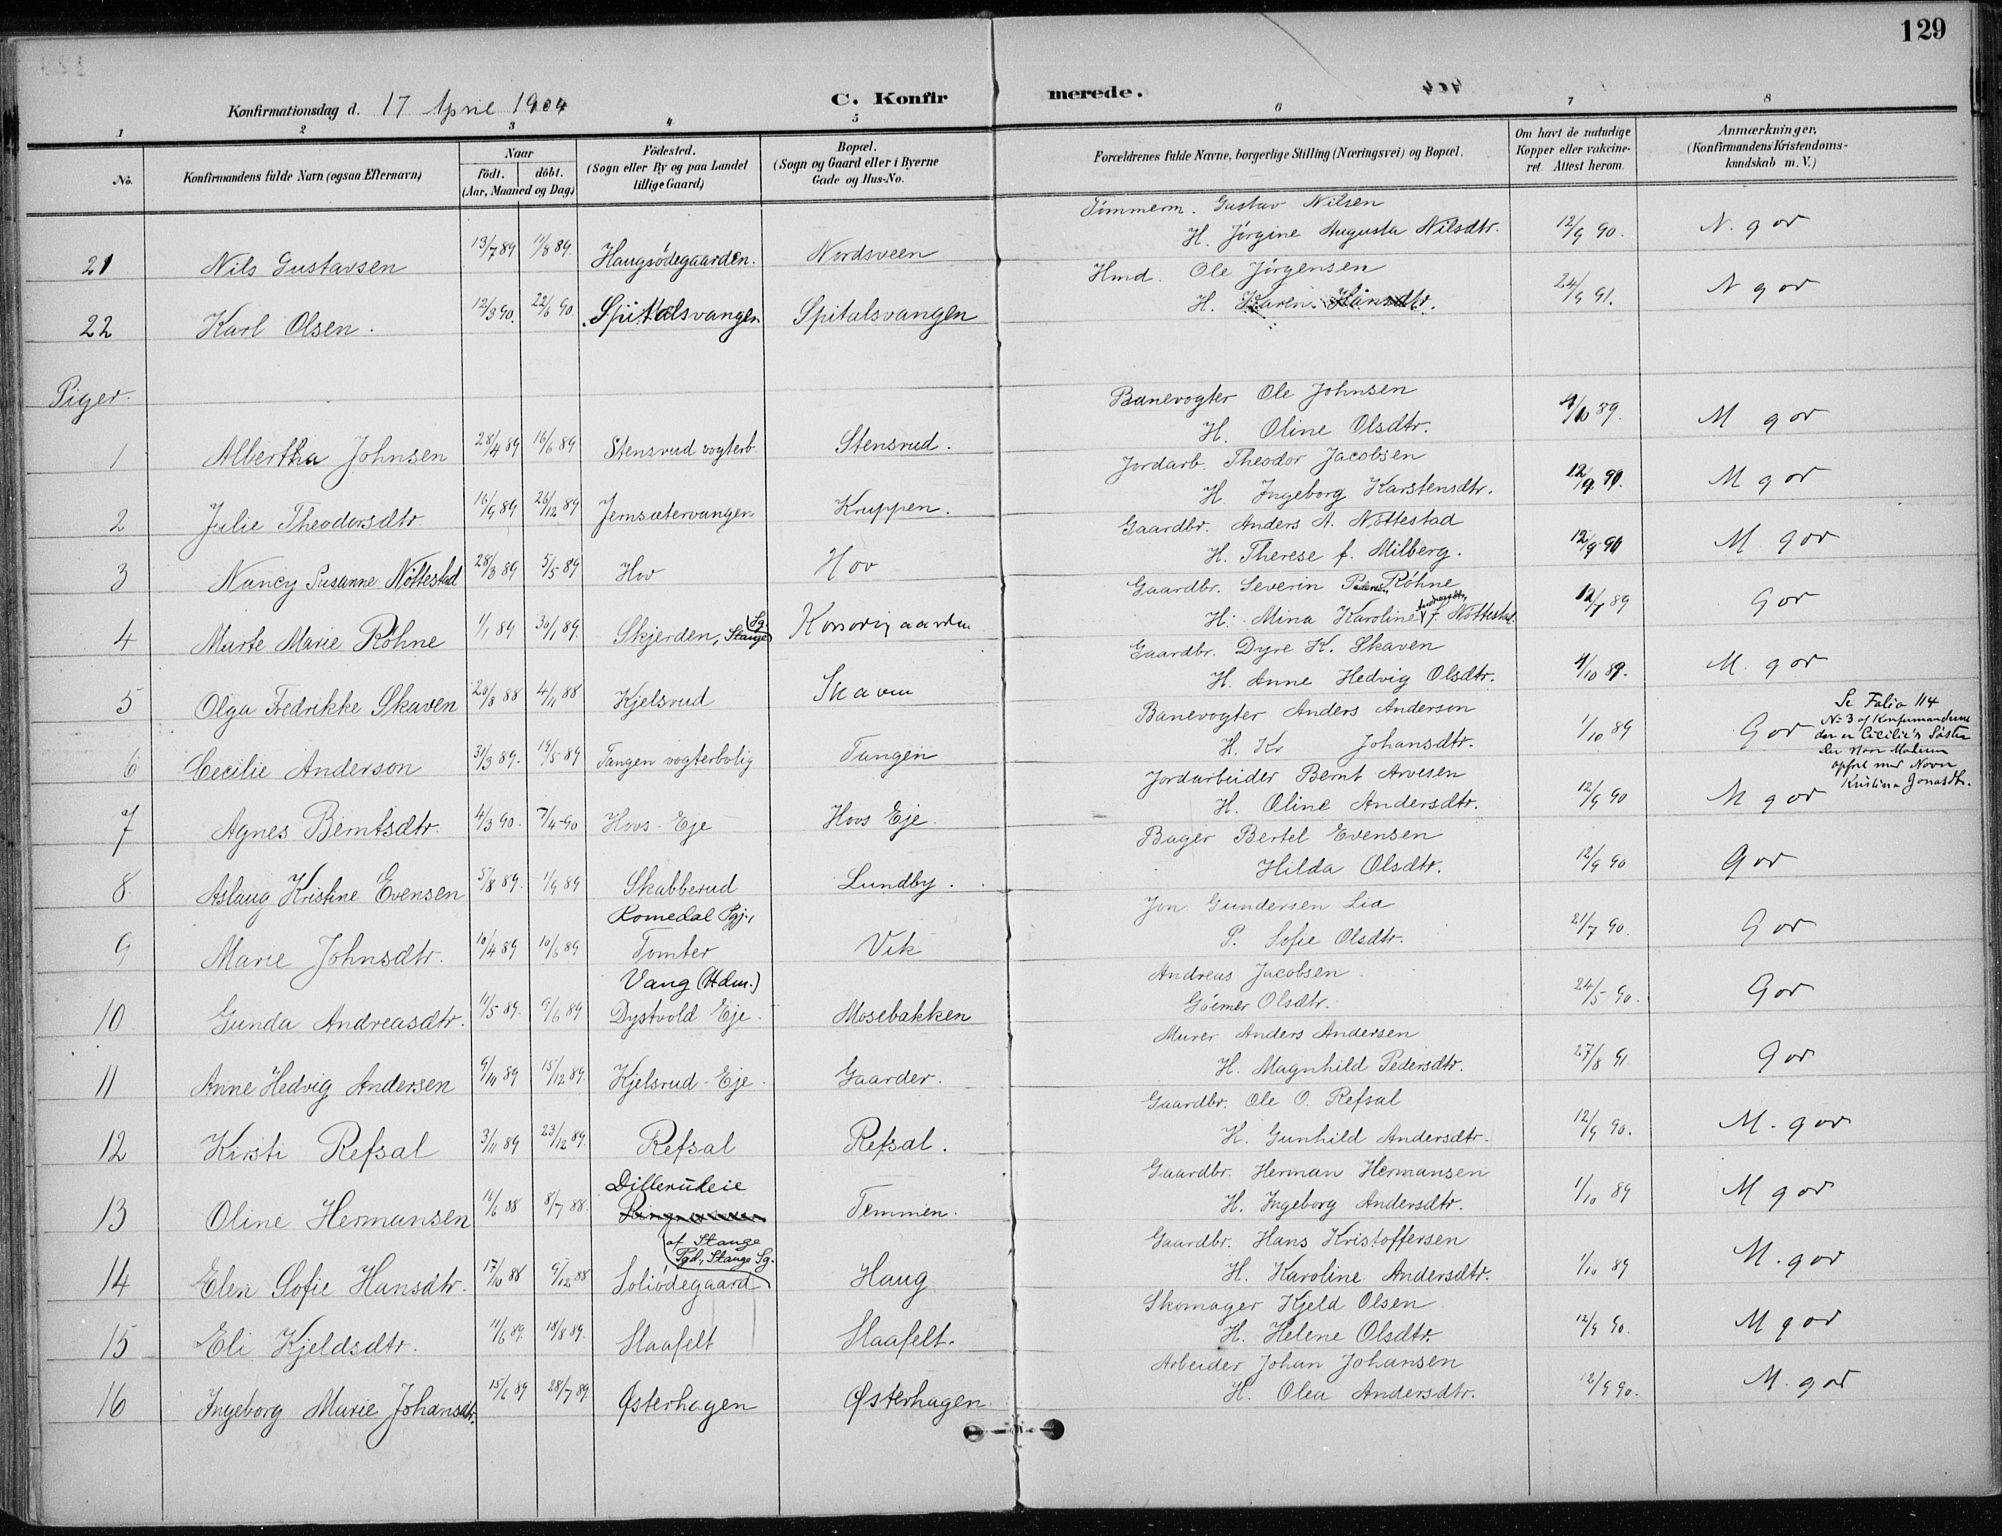 129
Konfirmationsdag d. 17 April 1904
C. Konfirmerede.
1 2 3 4 5 6 7 8
No.
Konfirmandens fulde Navn (ogsaa Efternavn)
Naar
födt. döbt.
(Aar, Maaned og Dag)
Födested.
(Sogn eller By og paa Landet
tillige Gaard)
Bopæl.
(Sogn og Gaard eller i Byerne
Gade og Hus-No.
Forældrenes fulde Navne, borgerlige Stilling (Næringsvei) og Bopæl.
Om havt de naturlige
Kopper eller vakcine-
ret. Attest herom.
Anmærkninger,
(Konfirmandens Kristendoms-
kundskab m. V.)
Tömmerm. Gustav Nilsen
21 Nils Gustavsen 13/7 89 11/8 89. Haugsödegaarden. Nordsveen H. Jörgine Augusta Nilsdtr. 12/9 90. N. g or
Hmd. Ole Jörgensen
22 Karl Olsen. 12/3 90. 22/6 90 Spitalsvangen Spitalsvangen H. Karen Hansdtr. 24/9 91. N g or
Piger.
Banevogter Ole Johnsen
1 Albertha Johnsen 28/4 89 16/6 89 Stensrud vogterb. Stensrud. H. Oline Olsdtr. 1/10 89. M g or
Jordarb. Theodor Jacobsen
2 Julie Theodorsdtr 16/9 89 26/12 89 Jemsætervangen Kruppen. H. Ingeborg Karstensdtr. 12/9 90. M g or
Gaardbr. Anders A. Nöttestad
3 Nancy Susanne Nöttestad 28/3 89 5/5 89 Hov Hov H. Therese f. Milberg. 12/9 90 M g or
Gaardbr. Severin Pedersen Röhne
4 Marte Marie Röhne 1/1 89 30/1 89. Skjerden, Stange Sg. Korsorigaarden H. Mina Karoline Andersdtr. f. Nöttestad 12/7 89 G or
Gaardbr. Dyre K. Skaven
5 Olga Fredrikke Skaven 20/8 88 4/11 88 Kjelsrud Skaven H. Anne Hedvig Olsdtr. 1/10 89. M. g or
Banevogter Anders Anderson
6 Cecilie Anderson 31/3 89. 19/5 89 Tangen vogterbolig Tangen H. Kr Johansdtr. 1/10 89 G or
Se Folio 114
No 3 af Konfirmanderne
der er Cecilie's Söster
der staar Moderen
opfört med Navn
Kristine Jonasdtr.
Jordarbeider Bernt Arvesen
7 Agnes Berntsdtr. 4/3 90. 7/4 90 Hovs Eje Hovs Eje. H. Oline Andersdtr. 12/9 90 M g or
Bager Bertel Evensen
8 Aslaug Kristine Evensen 5/8 89. 1/9 89 Skabberud Lundby. Hilda Olsdtr. 12/9 90 G or
Romedal Pgj.,
Jon Gundersen Lia
9 Marie Johnsdtr. 10/4 89 10/6 89 Tomter Vik P. Sofie Olsdtr. 21/7 90. G or
Vang (Hdm.)
Andreas Jacobsen
10 Gunda Andreasdtr. 11/5 89. 9/6 89 Dystvold Eje. Mosebakken Göemer Olsdtr. 24/5 90. G or
Murer Anders Andersen
11 Anne Hedvig Andersen 9/10 89 15/12 89. Kjelsrud-Eje. Gaarder. H. Magnhild Pedersdtr. 27/8 91 G or
Gaardbr. Ole O. Refsal
12 Kirsti Refsal 3/11 89 23/12 89. Refsal Refsal. H. Gunhild Andersdtr. 12/9 90. M. g or
Dillerudeie
Gaardbr. Herman Hermansen
13 Oline Hermansen 16/6 88 8/7 88. Temmen. H. Ingeborg Andersdtr. 1/10 89 M g or
af Stange
Pgd, Stange Sg.
Gaardbr. Hans Kristoffersen
14 Elen Sofie Hansdtr. 17/10 88 9/12 88 Soliödegaard Haug H. Karoline Andersdtr. 1/10 89 M. g or
Skomager Kjeld Olsen
15 Eli Kjeldsdtr. 11/6 89. 18/8 89. Slaafelt Slaafelt. H. Helene Olsdtr. 12/9 90. M g or
Arbeider Johan Johansen
16 Ingeborg Marie Johansdtr. 15/6 89 28/7 89 Østerhagen Østerhagen. H. Olea Andersdtr. 12/9 90. M. g or